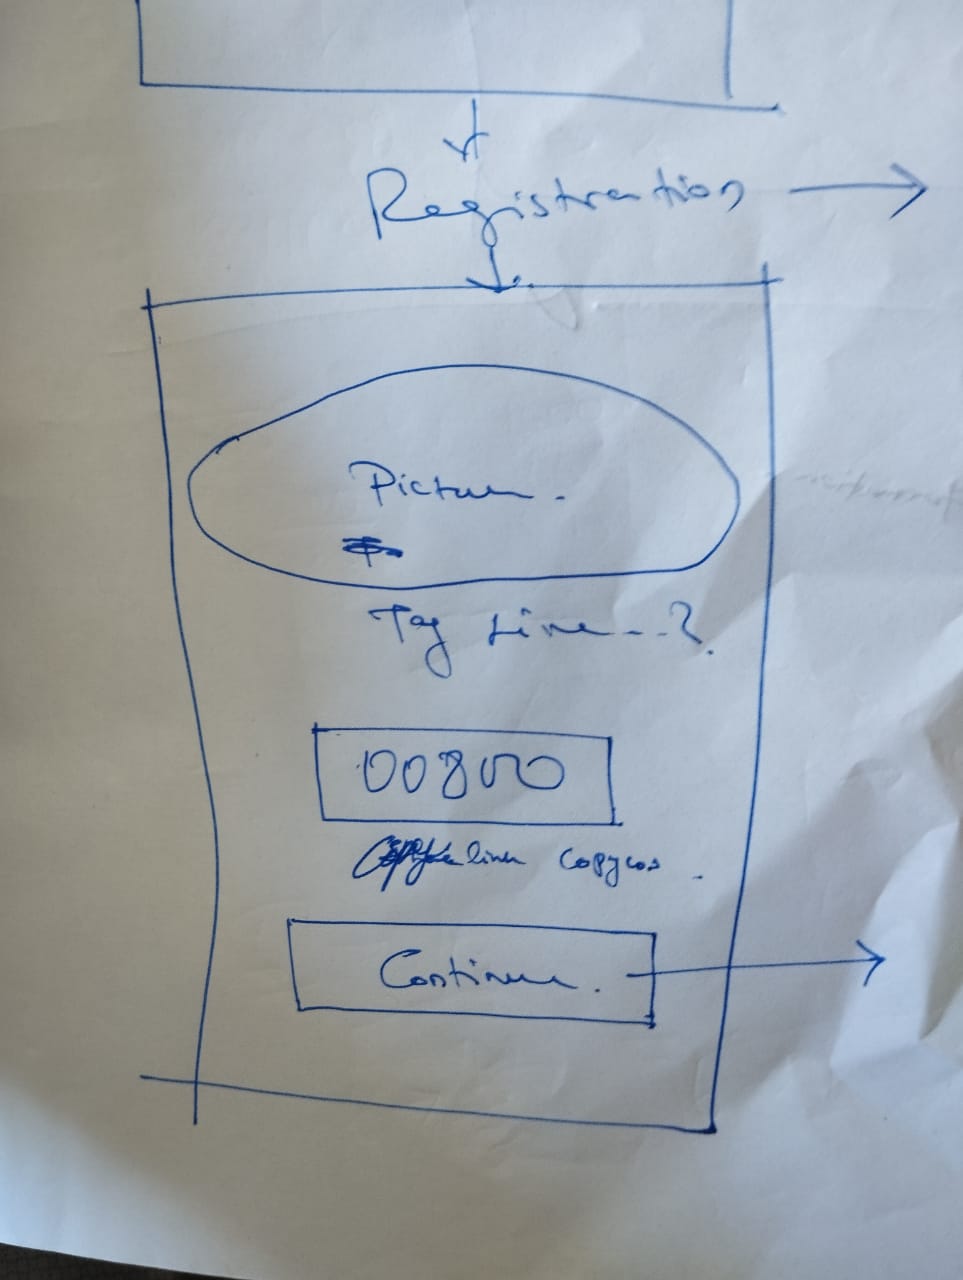 Registration
Picture.
Tag Line...?
line copycos.
Continue.